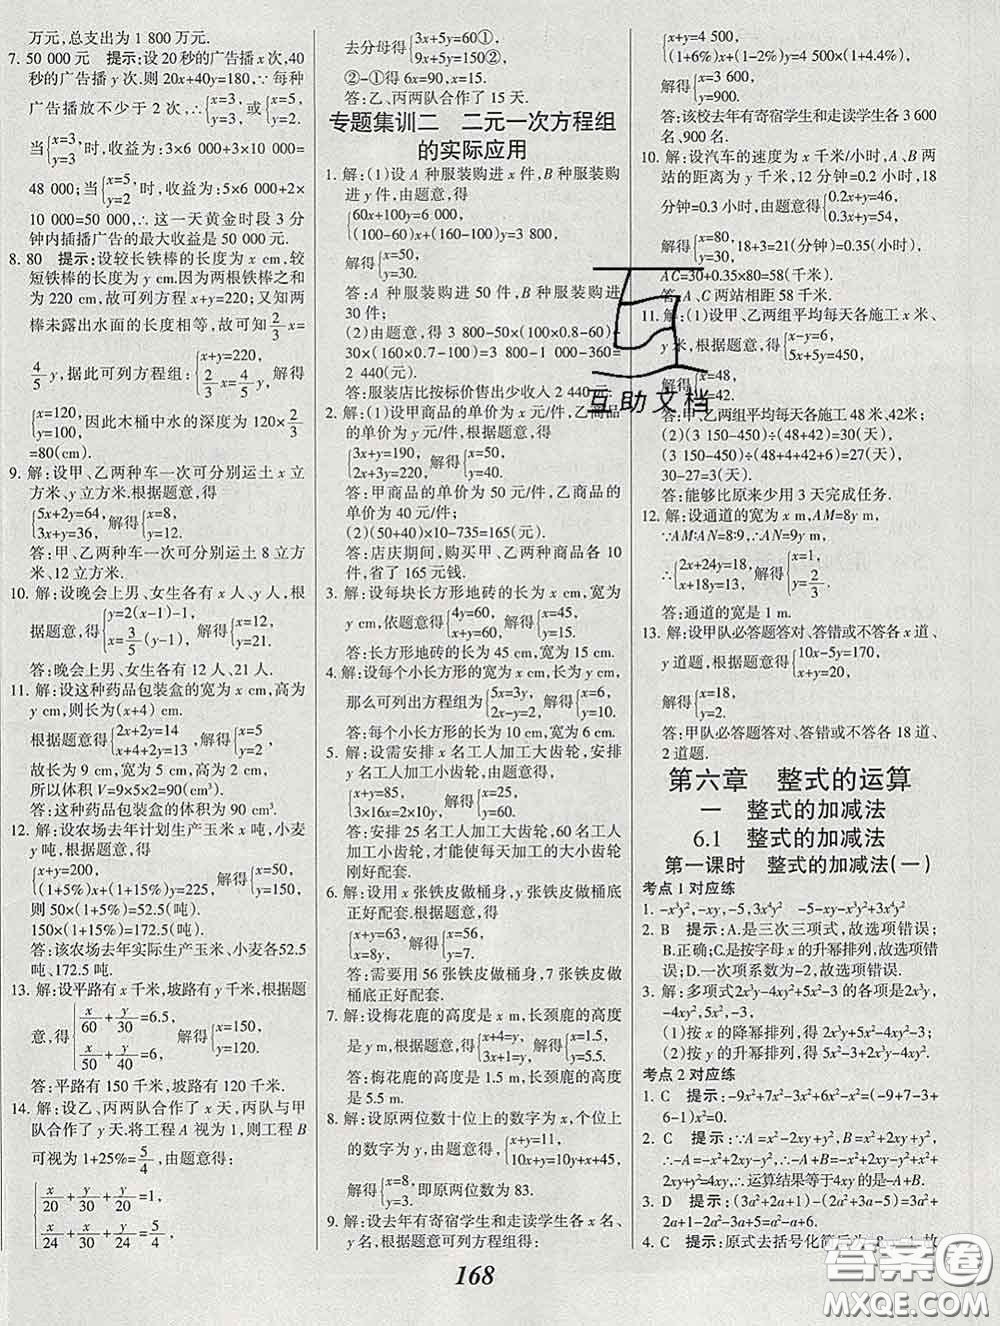 万元,总支出为1 800万元.
7. 50 000元　提示:设20秒的广告播x次,40
秒的广告播y次.则20x+40y=180,∵每种
广告播放不少于2次,∴{x=3,y=3,或{x=5,y=2.
当{x=3,y=3时,收益为:3×6 000+3×10 000=
48 000;当{x=5,y=2时,收益为:5×6 000+2×
10 000=50 000,∴这一天黄金时段3分
钟内插播广告的最大收益是50 000元.
8. 80　提示:设较长铁棒的长度为x cm,较
短铁棒的长度为y cm.因为两根铁棒之和
为220 cm,故可列方程x+y=220;又知两
棒未露出水面的长度相等,故可知2/3x=
4/5y,据此可列方程组:{x+y=220,2/3x=4/5y,解得
{x=120,y=100,因此木桶中水的深度为120×2/3
=80(cm).
9. 解:设甲、乙两种车一次可分别运土x立
方米、y立方米.根据题意,得
{5x+2y=64,3x+y=36,解得{x=8,y=12.
答:甲、乙两种车一次可分别运土8立方
米、12立方米.
10. 解:设晚会上男、女生各有x人、y人,根
据题意,得{y=2(x-1)-1,x=3/5(y-1),解得{x=12,y=21.
答:晚会上男、女生各有12人、21人.
11. 解:设这种药品包装盒的宽为x cm,高为
y cm,则长为(x+4) cm.
根据题意得{2x+2y=14,x+4+2y=13,解得{x=5,y=2.
故长为9 cm,宽为5 cm,高为2 cm.
所以体积V=9×5×2=90(cm³).
答:这种药品包装盒的体积为90 cm³.
12. 解:设农场去年计划生产玉米x吨,小麦
y吨.根据题意,得
{x+y=200,(1+5%)x+(1+15%)y=225,解得{x=50,y=150.
则50×(1+5%)=52.5(吨).
150×(1+15%)=172.5(吨).
答:该农场去年实际生产玉米、小麦各52.5
吨、172.5吨.
13. 解:设平路有x千米,坡路有y千米,根据题
意,得{x/60+y/30=6.5,x/50+y/40=6,解得{x=150,y=120.
答:平路有150千米,坡路有120千米.
14. 解:设乙、丙两队合作了x天,丙队与甲
队合作了y天.将工程A视为1,则工程B
可视为1+25%=5/4,由题意得:
{x/20+y/30+y/20=1,
x/24+x/30+y/24=5/4,
去分母得{3x+5y=60①,9x+5y=150②,
②-①得6x=90,x=15.
答:乙、丙两队合作了15天.
专题集训二　二元一次方程组
的实际应用
1. 解:(1)设A种服装购进x件,B种服装购
进y件,由题意,得
{60x+100y=6 000,(100-60)x+(160-100)y=3 800,
解得{x=50,y=30.
答:A种服装购进50件,B种服装购进
30件;
(2)由题意,得3 800-50×(100×0.8-60)-
30×(160×0.7-100)=3 800-1 000-360=
2 440(元).
答:服装店比按标价售出少收入2 440元.
2. 解:(1)设甲商品的单价为x元/件,乙商品
的单价为y元/件,根据题意,得
{3x+y=190,2x+3y=220,解得{x=50,y=40.
答:甲商品的单价为50元/件,乙商品的
单价为40元/件;
(2)(50+40)×10-735=165(元).
答:店庆期间,购买甲、乙两种商品各10
件,省了165元钱.
3. 解:设每块长方形地砖的长为x cm,宽为
y cm,依题意得{4y=60,x+y=60,解得{x=45,y=15.
答:长方形地砖的长为45 cm,宽为15 cm.
4. 解:设每个小长方形的长为y cm,宽为x cm,
那么可列出方程组为{5x=3y,2x-y=2,解得{x=6,y=10.
答:每个小长方形的长为10 cm,宽为6 cm.
5. 解:设需安排x名工人加工大齿轮,安排
y名工人加工小齿轮,由题意得:
{x+y=85,3×16x=2×10y,解得{x=25,y=60.
答:安排25名工人加工大齿轮,60名工人
加工小齿轮,才能使每天加工的大小齿轮
刚好配套.
6. 解:设用x张铁皮做桶身,y张铁皮做桶底
正好配套.根据题意,得
{x+y=63,x=8y,解得{x=56,y=7.
答:需要用56张铁皮做桶身,7张铁皮做
桶底正好配套.
7. 解:设梅花鹿的高度是x m,长颈鹿的高度
是y m,根据题意,得{y-x=4,3x+1=y,解得{x=1.5,y=5.5.
答:梅花鹿的高度是1.5 m,长颈鹿的高度
是5.5 m.
8. 解:设原两位数十位上的数字为x,个位上
的数字为y,由题意得:{x+y=11,10x+y=10y+x+45,
解得{x=8,y=3.即原两位数为83.
9. 解:设去年有寄宿学生和走读学生各x名、
y名.根据题意可列方程组得:
{x+y=4 500,(1+6%)x+(1-2%)y=4 500×(1+4.4%),
解得{x=3 600,y=900.
答:该校去年有寄宿学生和走读学生各3 600
名、900名.
10. 解:设汽车的速度为x千米/小时,A、B两
站的距离为y千米,12分钟=0.2小时,18
分钟=0.3小时,由题意得{0.2x+y=46,0.3x+y=54,
解得{x=80,y=30,18+3=21(分钟)=0.35(小时),
AC=30+0.35×80=58(千米).
答:A、C两站相距58千米.
11. 解:(1)设甲、乙两组平均每天各施工x米、
y米,根据题意,得{x-y=6,5x+5y=450,
解得{x=48,y=42.
答:甲、乙两组平均每天各施工48米,42米;
(2)(3 150-450)÷(48+42)=30(天),
(3 150-450)÷(48+4+42+6)=27(天),
30-27=3(天).
答:能够比原来少用3天完成任务.
12. 解:设通道的宽为x m,AM=8y m,
∵AM:AN=8:9,∴AN=9y m,
∴{2x+24y=18,x+18y=13,解得{x=1,y=2/3.
答:通道的宽是1 m.
13. 解:设甲队必答题答对、答错或不答各x道、
y道题,根据题意,得{10x-5y=170,x+y=20,
解得{x=18,y=2.
答:甲队必答题答对、答错或不答各18道、
2道题.
第六章　整式的运算
一　整式的加减法
6.1　整式的加减法
第一课时　整式的加减法(一)
考点1对应练
1. -x³y²,-xy,-5,3x⁴y²　-5-xy-x³y²+3x⁴y²
2. B　提示:A.是三次三项式,故选项错误;
B.正确;C.是按字母x的升幂排列,故选项错
误;D.一次项系数为-2,故选项错误.
3. 解:多项式2x³y-4xy²+5x²-3的各项为2x³y,
-4xy²,5x²,-3,
(1)按x的降幂排列,得2x³y+5x²-4xy²-3;
(2)按y的升幂排列,得5x²-3+2x³y-4xy².
考点2对应练
1. C　提示:-9x²+7x²-3x²+6x²-x²=(-9+7-3+
6-1)x²=0.
2. C　提示:∵A=x²-2xy+y²,B=x²+2xy+y²,
∴-A=-x²+2xy-y²,∴-A+B=-x²+2xy-y²+x²+
2xy+y²=4xy,∴运算结果等于4xy的是-A+B.
3. D　提示:(3a²+2a+1)-(2a²+3a-5)=3a²+
2a+1-2a²-3a+5=a²-a+6.
4. C　提示:原式去括号化简后为
168
互助文档
答案圈
MXQE.COM